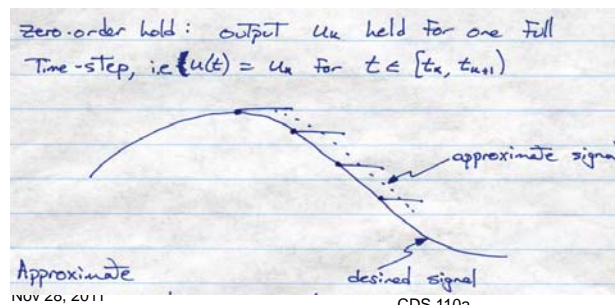 zero-order hold: output uₖ held for one full
Time-step, i.e. u(t) = uₖ for t ∈ [tₖ, tₖ₊₁)
approximate signal
Approximate
desired signal
Nov 28, 2011
CDS 110a